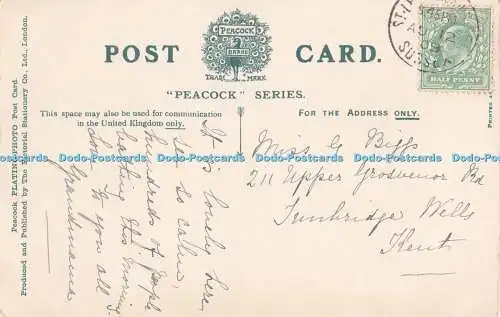 POST CARD.
PEACOCK
BRAND
TRADE MARK
"PEACOCK" SERIES.
This space may also be used for communication
in the United Kingdom only.
FOR THE ADDRESS ONLY.
HALF PENNY
SUSSEX
Peacock PLATINO-PHOTO Post Card.
Produced and Published by The Pictorial Stationery Co., Ltd., London.
It is lovely here,
sea so calm,
hundreds of people
bathing this morning
love to you all
Grandmama
Miss G Biggs
211 Upper Grosvenor Rd
Tunbridge Wells
Kent
Dodo-Postcards Dodo-Postcards Dodo-Postcards Dodo-Postcards Dodo-Postcards